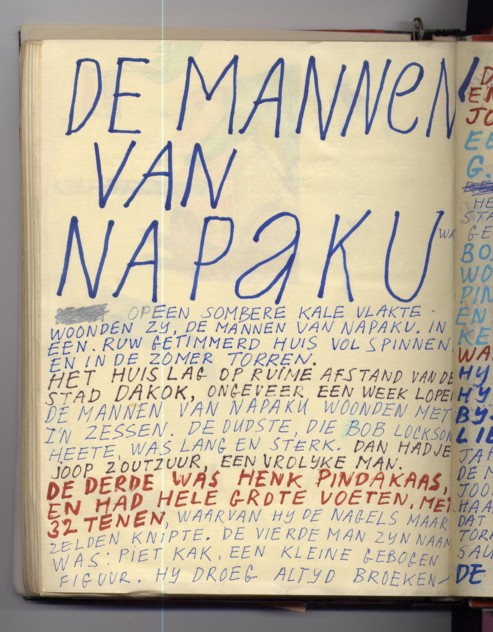 DE MANNEN
VAN
NAPAKU
OP EEN SOMBERE KALE VLAKTE
WOONDEN ZY, DE MANNEN VAN NAPAKU. IN
EEN. RUW GETIMMERD HUIS VOL SPINNEN
EN IN DE ZOMER TORREN.
HET HUIS LAG OP RUIME AFSTAND VAN DE
STAD DAKOK, ONGEVEER EEN WEEK LOPEN
DE MANNEN VAN NAPAKU WOONDEN MET
ZN ZESSEN. DE OUDSTE, DIE BOB LOCKSON
HEETE, WAS LANG EN STERK. DAN HAD JE
JOOP ZOUTZUUR, EEN VROLYKE MAN.
DE DERDE WAS HENK PINDAKAAS,
EN HAD HELE GROTE VOETEN, MET
32 TENEN, WAARVAN HY DE NAGELS MAAR
ZELDEN KNIPTE. DE VIERDE MAN ZYN NAAM
WAS: PIET KAK, EEN KLEINE GEBOGEN
FIGUUR. HY DROEG ALTYD BROEKEN